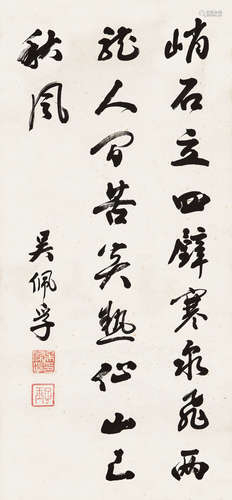 峭石立四壁寒泉飛兩
龍人間苦炎熱仙山已
秋風
吳佩孚